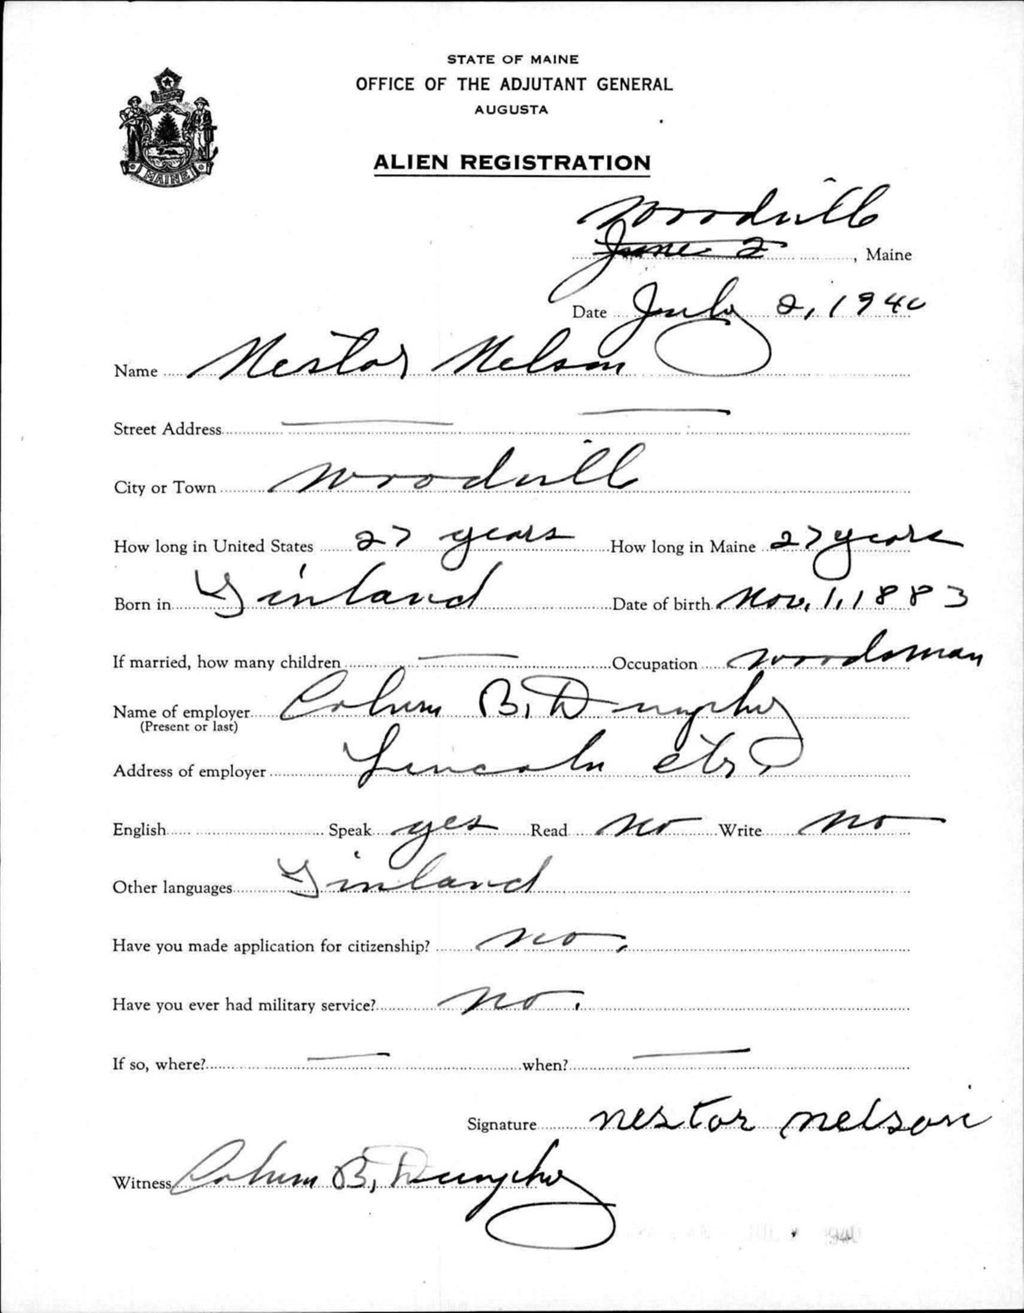 STATE OF MAINE
OFFICE OF THE ADJUTANT GENERAL
AUGUSTA
ALIEN REGISTRATION
MAINE
Woodville
June 2, Maine
Date July 2, 1940
Name Nestor Nelson
Street Address
City or Town Woodville
How long in United States 27 years How long in Maine 27 years
Born in Finland Date of birth Nov. 1, 1883
If married, how many children Occupation Woodsman
Name of employer Colum B. Dunphy
(Present or last)
Address of employer Lincoln
English Speak yes Read no Write no
Other languages Finland
Have you made application for citizenship? no.
Have you ever had military service? no.
If so, where? when?
Signature nestor nelson
Witness Colum B. Dunphy
1940